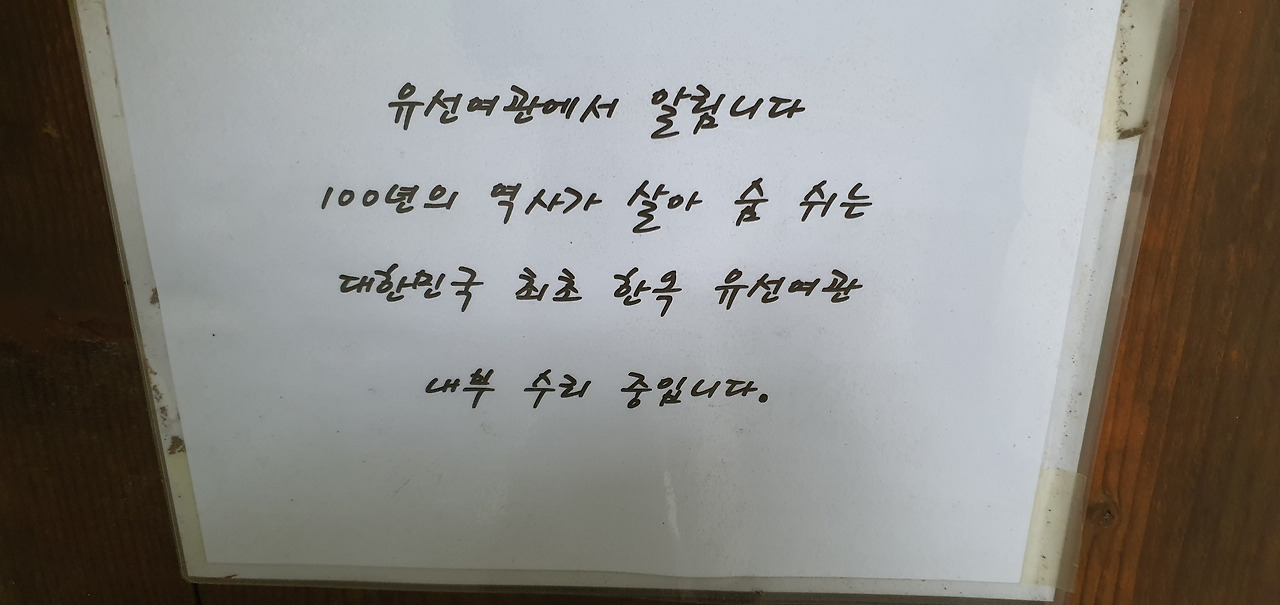 유선여관에서 알림니다
100년의 역사가 살아 숨 쉬는
대한민국 최초 한옥 유선여관
내부 수리 중입니다.